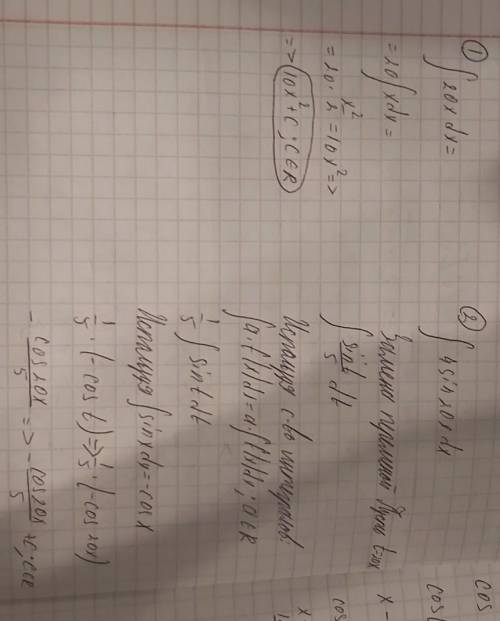 ① ∫20xdx=
=20∫xdx=
=20·x²/2=10x²=>
=>10x²+C; C∈R
② ∫4sin20xdx
Замена переменной Пусть t=20x
∫sint/5 dt
Используя с-во интегралов:
∫a·f(x)dx=a·∫f(x)dx; a∈R
1/5∫sintdt
Используя ∫sinxdx=-cosx
1/5·(-cost)=>1/5·(-cos20x)
-cos20x/5=>-cos20x/5+C; C∈R
cos
cos
x-
cos
x